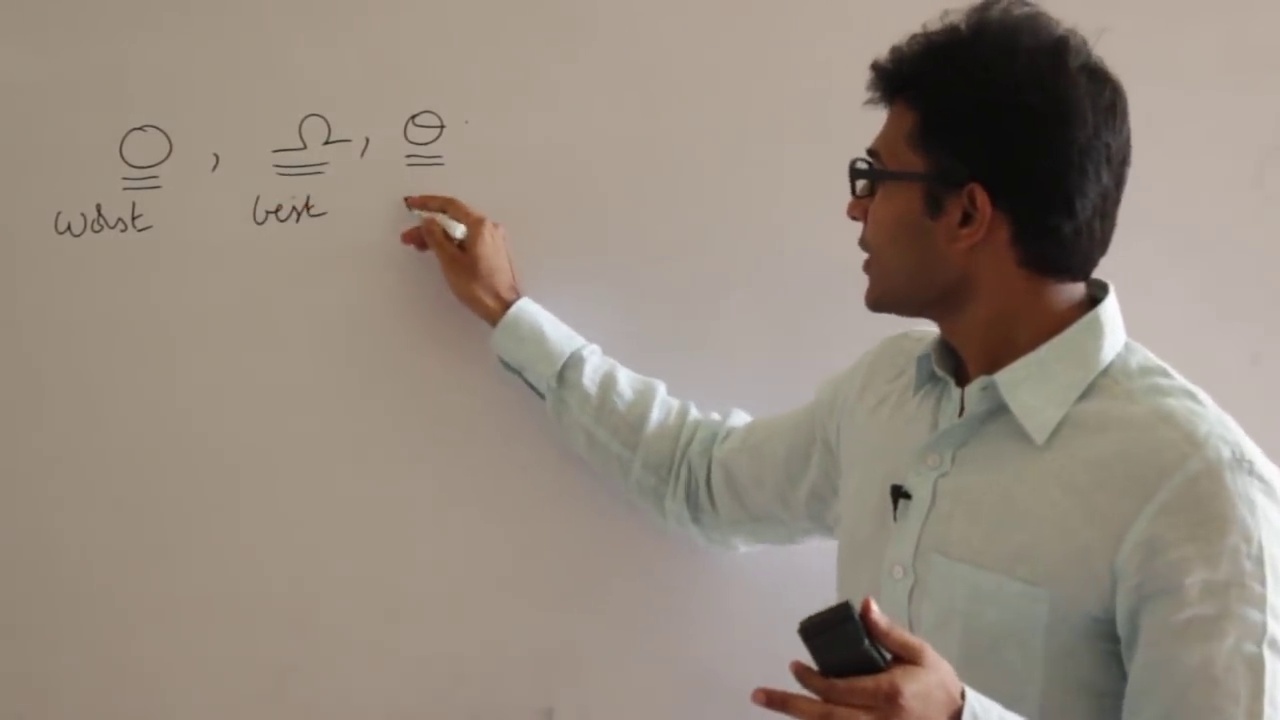 O , Ω , Θ
worst best